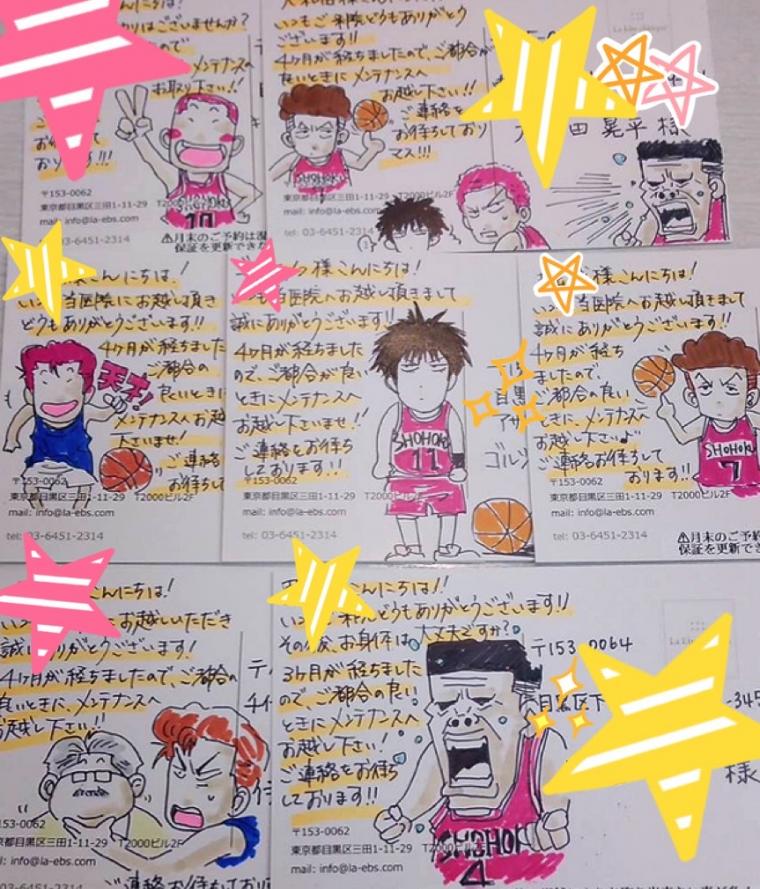 んにちは!
りはございませんか?
メンテナンスへ
お取り下さい!!
おり
〒153-0062
東京都目黒区三田1-11-29 T200
mail: info@la-ebs.com
tel: 03-6451-2314
⚠月末のご予約は混
保証を更新でき
いつもご来院どうもありがとう
ございます!!
4ヶ月が経ちましたので、ご都合が
良いときにメンテナンスへ
お越し下さい!!
ご連絡を
お待ちしており
マス!!!
SHOHOKU
〒153-0062
東京都目黒区三田1-11-29 T2000ビル2F
mail: info@la-ebs.com
田 晃平 様
様こんにちは!
当医院にお越し頂き
どうもありがとうございます!!
4ヶ月が経ちました
ご都合の
良いときに
メンテナンスへお越
下さいませ!
天才!
ご連絡
お待ちして
〒153-0062
東京都目黒区三田1-11-29 T2000ビル2F
mail: info@la-ebs.com
tel: 03-6451-2314
様こんにちは!
当医院へお越し頂きまして
誠にありがとうございます!!
4ヶ月が経ちました
ので、ご都合が良い
ときにメンテナンスへ
お越し下さいませ!!
ご連絡をお待ち
しております!!
SHOHOKU
11
〒153-0062
東京都目黒区三田1-11-29 T2000ビル2F
mail: info@la-ebs.com
tel: 03-6451-2314
様こんにちは!
当医院へお越し頂きまして
誠にありがとうございます!!
4ヶ月が経ち
ましたので、
ご都合の良い
ときに、メンテナンスへ
お越し下さい
ご連絡お待ちして
おります!!
SHOHOKU
7
〒153-0062
東京都目黒区三田1-11-29 T2000ビル2F
mail: info@la-ebs.com
tel: 03-6451-2314
⚠月末のご予
保証を更新で
こんにちは!
お越しいただき
誠にありがとうございます!
4ヶ月が経ちましたので、ご都合の
良いときに、メンテナンスへ
お越し下さい!!
153-0062
東京都目黒区三田1-11-29 T2000ビル2F
mail: info@la-ebs.com
ご連絡お待ちしており
こんにちは!
いつもご来院どうもありがとうございます!!
その後、お身体は大丈夫ですか?
3ヶ月が経ちました
ので、ご都合の良い
ときにメンテナンスへ
お越し下さい!
ご連絡をお待ち
しております!!
〒153-0064
目黒区下
-345
様
SHOHOK
4
〒153-0062
東京都目黒区三田1-11-29 T2000ビル2F
mail: info@la-ebs.com